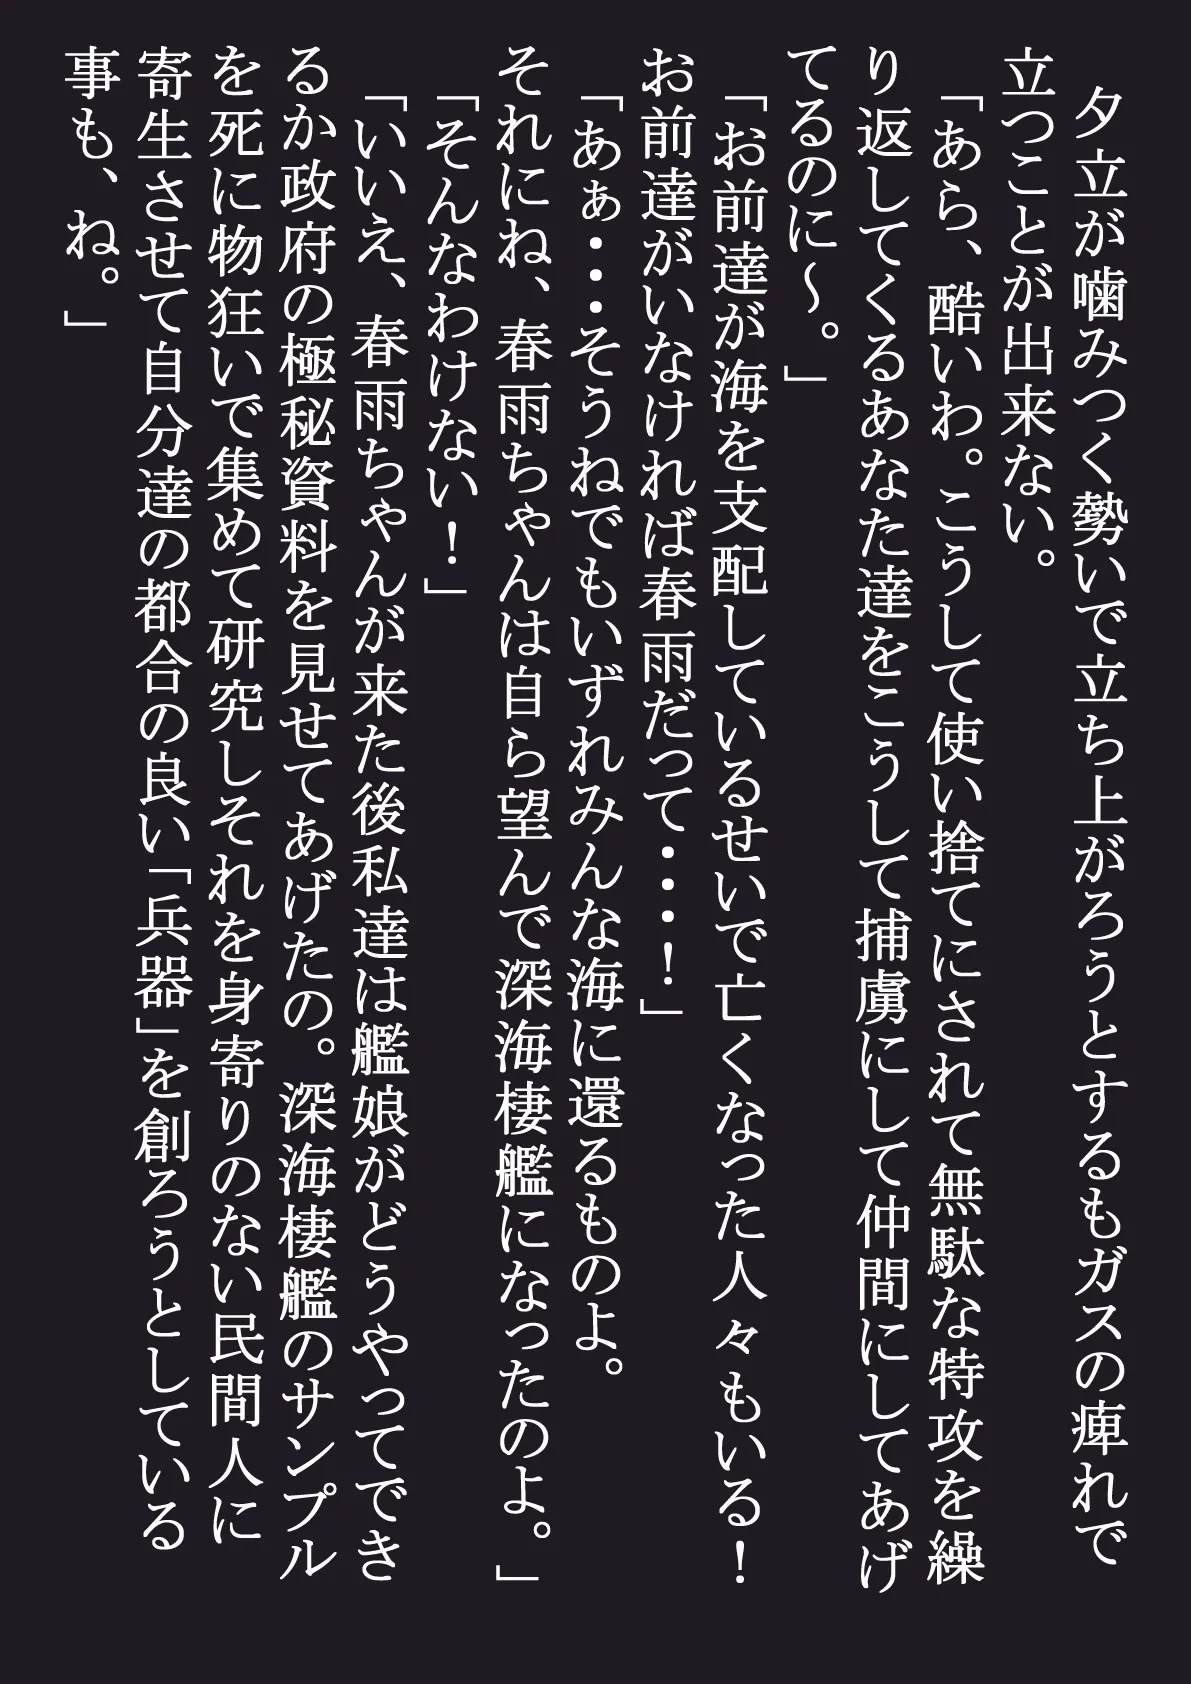 夕立が噛みつく勢いで立ち上がろうとするもガスの痺れで
立つことが出来ない。
「あら、酷いわ。こうして使い捨てにされて無駄な特攻を繰
り返してくるあなた達をこうして捕虜にして仲間にしてあげ
てるのに～。」
「お前達が海を支配しているせいで亡くなった人々もいる！
お前達がいなければ春雨だって・・・！」
「あぁ・・・そうねでもいずれみんな海に還るものよ。
それにね、春雨ちゃんは自ら望んで深海棲艦になったのよ。」
「そんなわけない！」
「いいえ、春雨ちゃんが来た後私達は艦娘がどうやってでき
るか政府の極秘資料を見せてあげたの。深海棲艦のサンプル
を死に物狂いで集めて研究しそれを身寄りのない民間人に
寄生させて自分達の都合の良い「兵器」を創ろうとしている
事も、ね。」